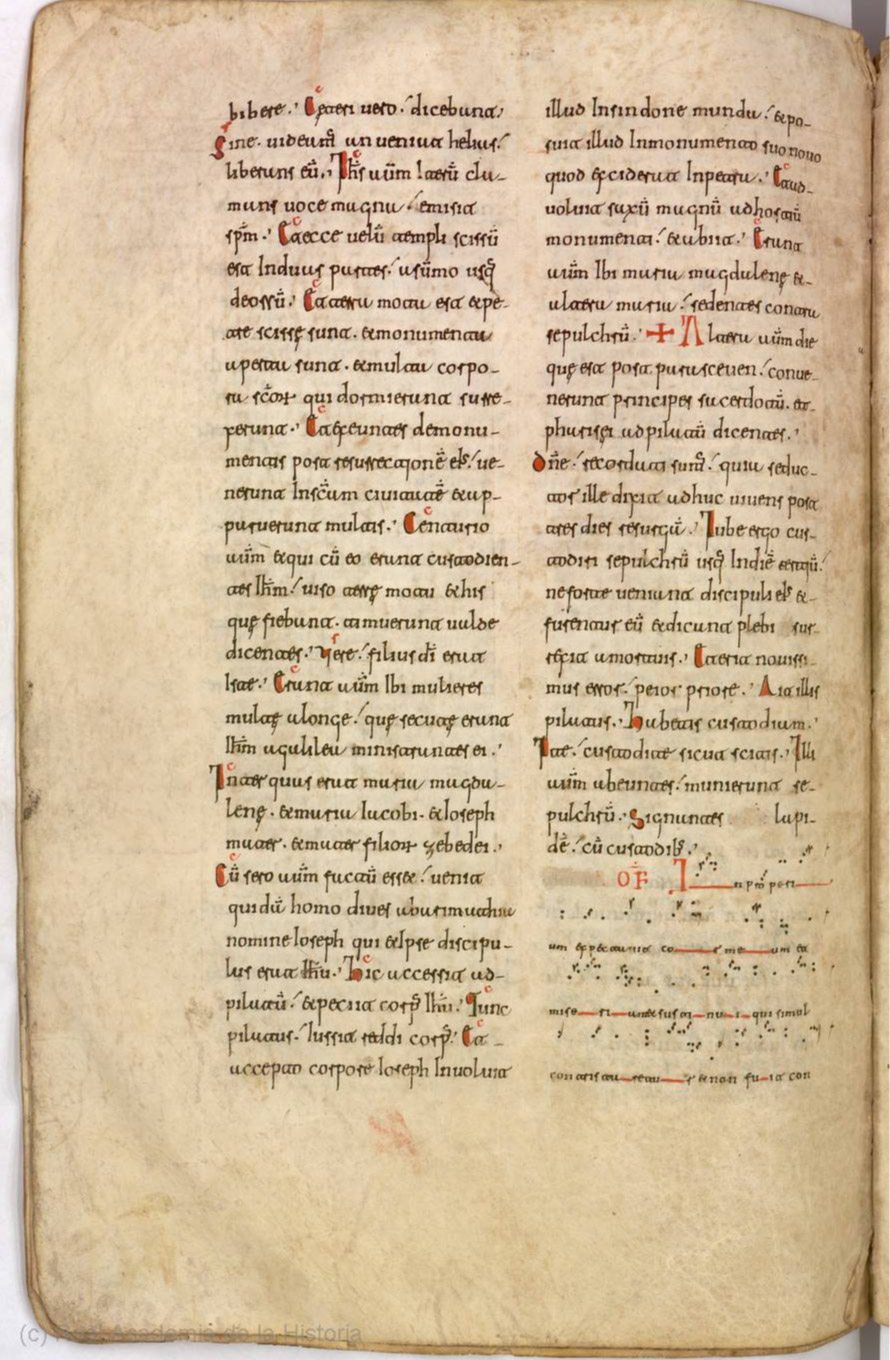 bibere. Ceteri vero. dicebant
Sine. videam̄ an veniat helias
liberans eū. Ihs̄ aūm Iterū cla-
mans voce magna. emisit
spm̄. Et ecce velū templi scissū
est In duas partes. a sūmo usq̄
deossū. Et terra mota est et pe-
tre scissę sunt. et monumenta
aperta sunt. et multa corpo-
ra sc̄oꝝ qui dormierunt surre-
xerunt. Et exeuntes de monu-
mentis post resurrectionē eīs. ve-
nerunt In sc̄am civitatē et ap-
paruerunt multis. Centurio
aūm et qui cū eo erant custodien-
tes Ihm̄. viso terrę motu et his
quę fiebant. timuerunt valde
dicentes. Vere. filius dī erat
Iste. Erant aūm Ibi mulieres
multę a longe. quę secutę erant
Ihm̄ a galilea ministrantes ei.
Inter quas erat maria magda-
lenę. et maria Iacobi. et Ioseph
mater. et mater filioꝝ zebedei.
Cū sero aūm factū esset. venit
quidā homo dives ab arimathia
nomine Ioseph qui et Ipse discipu-
lus erat Ihū. Hic accessit ad
pilatū. et petiit corp̄ Ihū. Tunc
pilatus. Iussit reddi corp̄. Et
accepto corpore Ioseph Involvit
illud In sindone munda. et po-
suit illud In monumento suo novo
quod exciderat In petra. Et ad-
volvit saxū magnū ad hostiū
monumenti. et abiit. Erant
aūm Ibi maria magdalenę et
altera maria. sedentes contra
sepulchrū. + Altera aūm die
quę est post parasceuen. conve-
nerunt principes sacerdotū. et
pharisęi ad pilatū dicentes.
Dn̄e. recordati sum̄. quia seduc-
tor ille dixit adhuc vivens post
tres dies resurgā. Iube ergo cus-
todiri sepulchrū usq̄ In diē tertiū.
ne forte veniant discipuli eīs et
furentur eū et dicant plebi sur-
rexit a mortuis. Et erit novissi-
mus error. peior priore. Ait illis
pilatus. Habetis custodiam.
Ite. custodite sicut scitis. Illi
aūm abeuntes. munierunt se-
pulchrū. Signantes lapi-
dē. cū custodib̄.
OF̄ Inproperi
um expectavit cor meum et
miseriam et sustinui qui simul
contristaretur et non fuit con